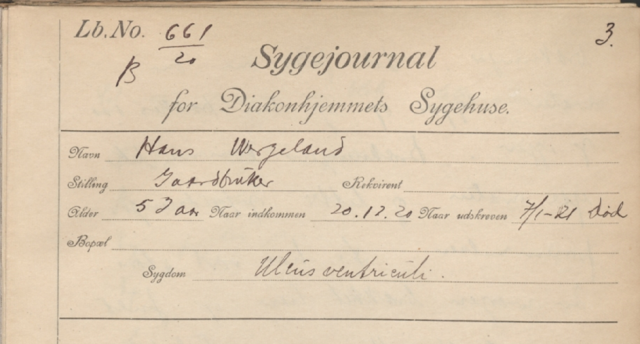 Lb. No. 661/20 3.
B
Sygejournal
for Diakonhjemmets Sygehuse.
Navn Hans Wergeland
Stilling Gaardbruker Rekvirent
Alder 52 aar Naar indkommen 20.12.20 Naar udskreven 7/1-21 Død
Bopæl
Sygdom Ulcus ventriculi.